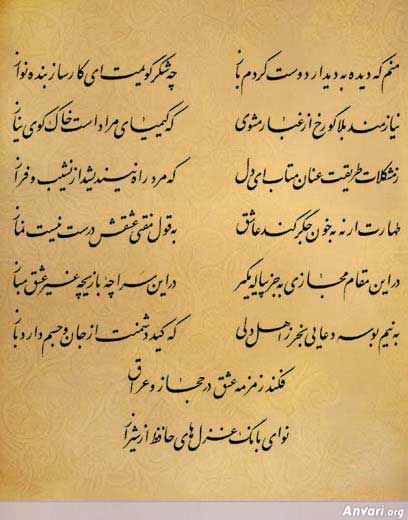 منم که دیده به دیدار دوست کردم باز چه شکر گویمت ای کارساز بنده نواز
نیازمند بلا گو رخ از غبار مشوی که کیمیای مراد است خاک کوی نیاز
ز مشکلات طریقت عنان متاب ای دل که مرد راه نیندیشد از نشیب و فراز
طهارت ار نه به خون جگر کند عاشق به قول مفتی عشقش درست نیست نماز
در این مقام مجازی به جز پیاله مگیر در این سراچه بازیچه غیر عشق مباز
به نیم بوسه دعایی بخر ز اهل دلی که کید دشمنت از جان و جسم دارد باز
فکند زمزمه عشق در حجاز و عراق
نوای بانگ غزل‌های حافظ از شیراز
Anvari.org